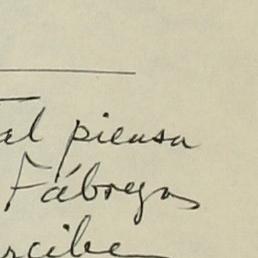 al piensa
Fábregas
rcibe